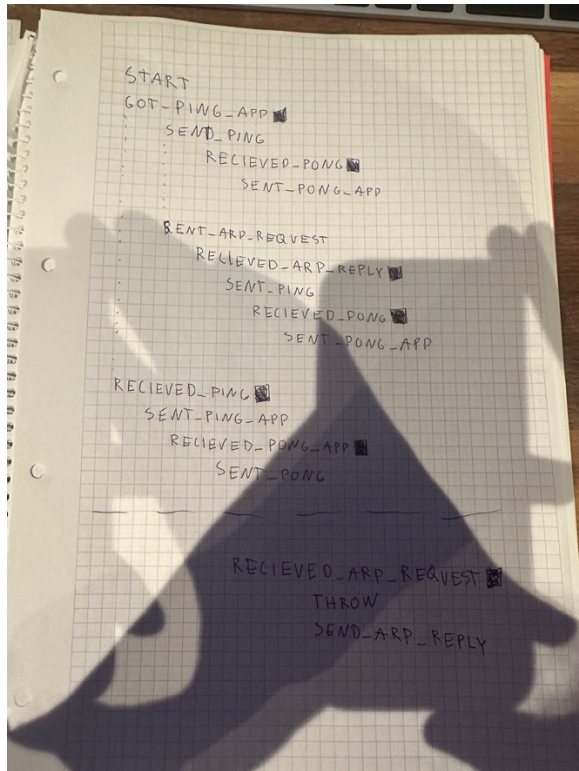 START
GOT-PING_APP
SEND_PING
RECIEVED_PONG
SENT-PONG_APP
SENT-ARP_REQUEST
RELIEVED_ARP_REPLY
SENT-PING
RECIEVED_PONG
SENT_PONG_APP
RECIEVED_PING
SENT-PING_APP
RECIEVED_PONG_APP
SENT_PONG
RECIEVED_ARP_REQUEST
THROW
SEND_ARP_REPLY